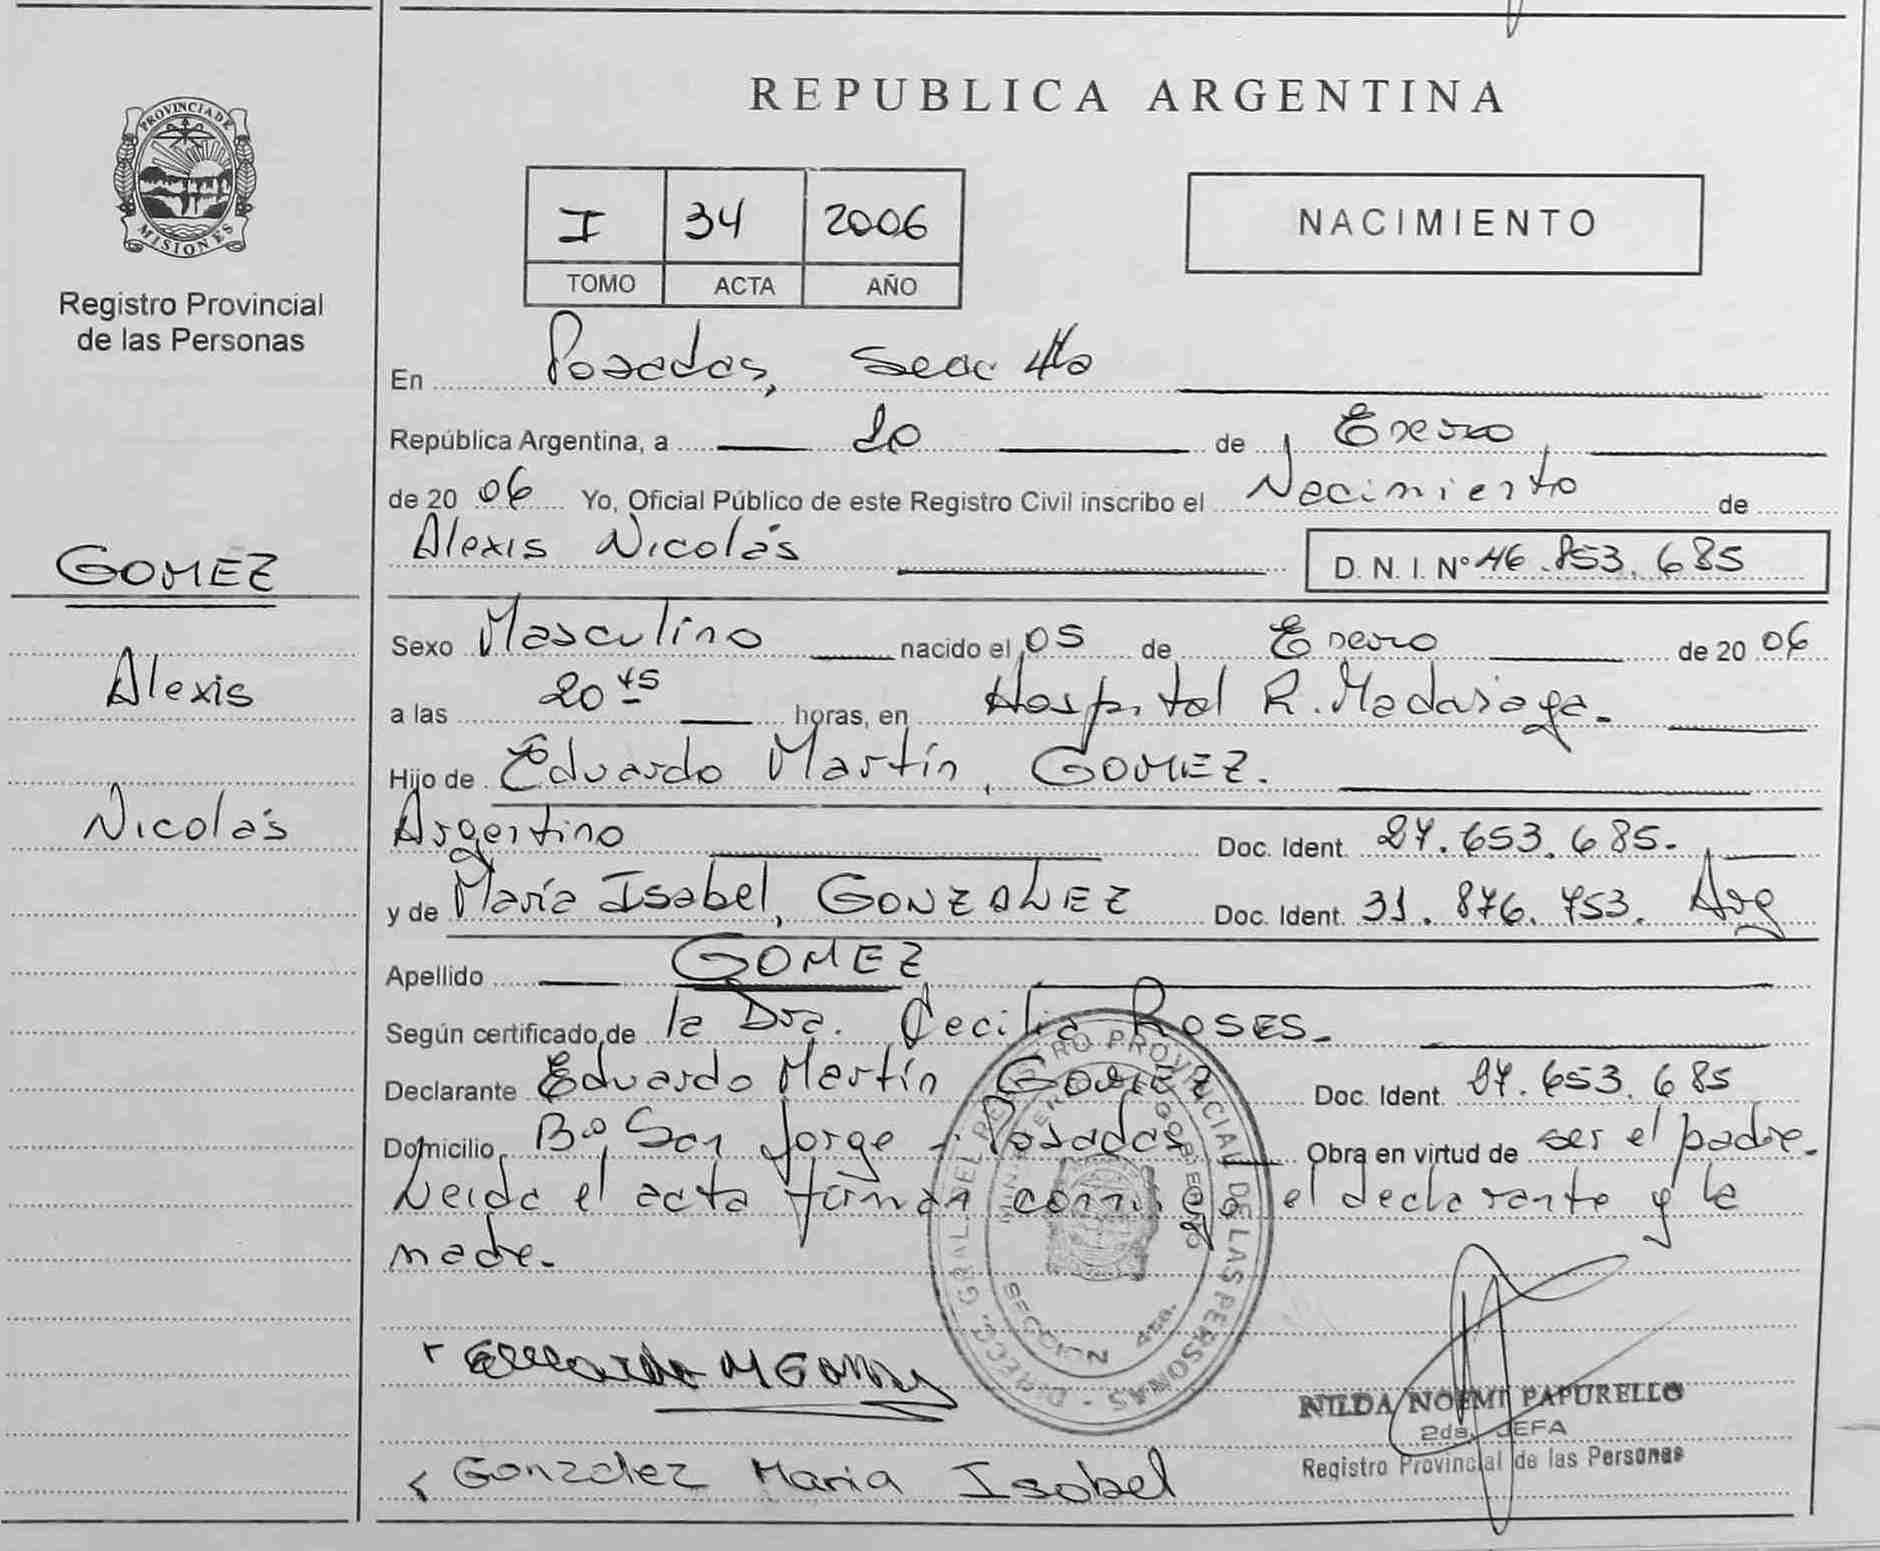 PROVINCIA DE
MISIONES
Registro Provincial
de las Personas
GOMEZ
Alexis
Nicolás
REPUBLICA ARGENTINA
I 34 2006
TOMO ACTA AÑO
NACIMIENTO
En Posadas, Secc 4ta
República Argentina, a 10 de Enero
de 2006 Yo, Oficial Público de este Registro Civil inscribo el Nacimiento de
Alexis Nicolás D. N. I. Nº 46.853.685
Sexo Masculino nacido el 05 de Enero de 2006
a las 20 45 horas, en Hospital R. Madariaga.
Hijo de Eduardo Martín, GOMEZ.
Argentino Doc. Ident. 27.653.685.
y de María Isabel, GONZALEZ Doc. Ident. 31.876.753. Arg
Apellido GOMEZ
Según certificado de la Dra. Cecilia ROSES.
Declarante Eduardo Martín GOMEZ Doc. Ident. 27.653.685
Domicilio Bº San Jorge - Posadas Obra en virtud de ser el padre.
Leida el acta firman conmigo el declarante y la
madre.
DIRECC. GRAL. DEL REGISTRO PROVINCIAL DE LAS PERSONAS
SECCION 4ta.
NILDA NOEMI PAPURELLO
2da. JEFA
Registro Provincial de las Personas
Gonzalez Maria Isabel